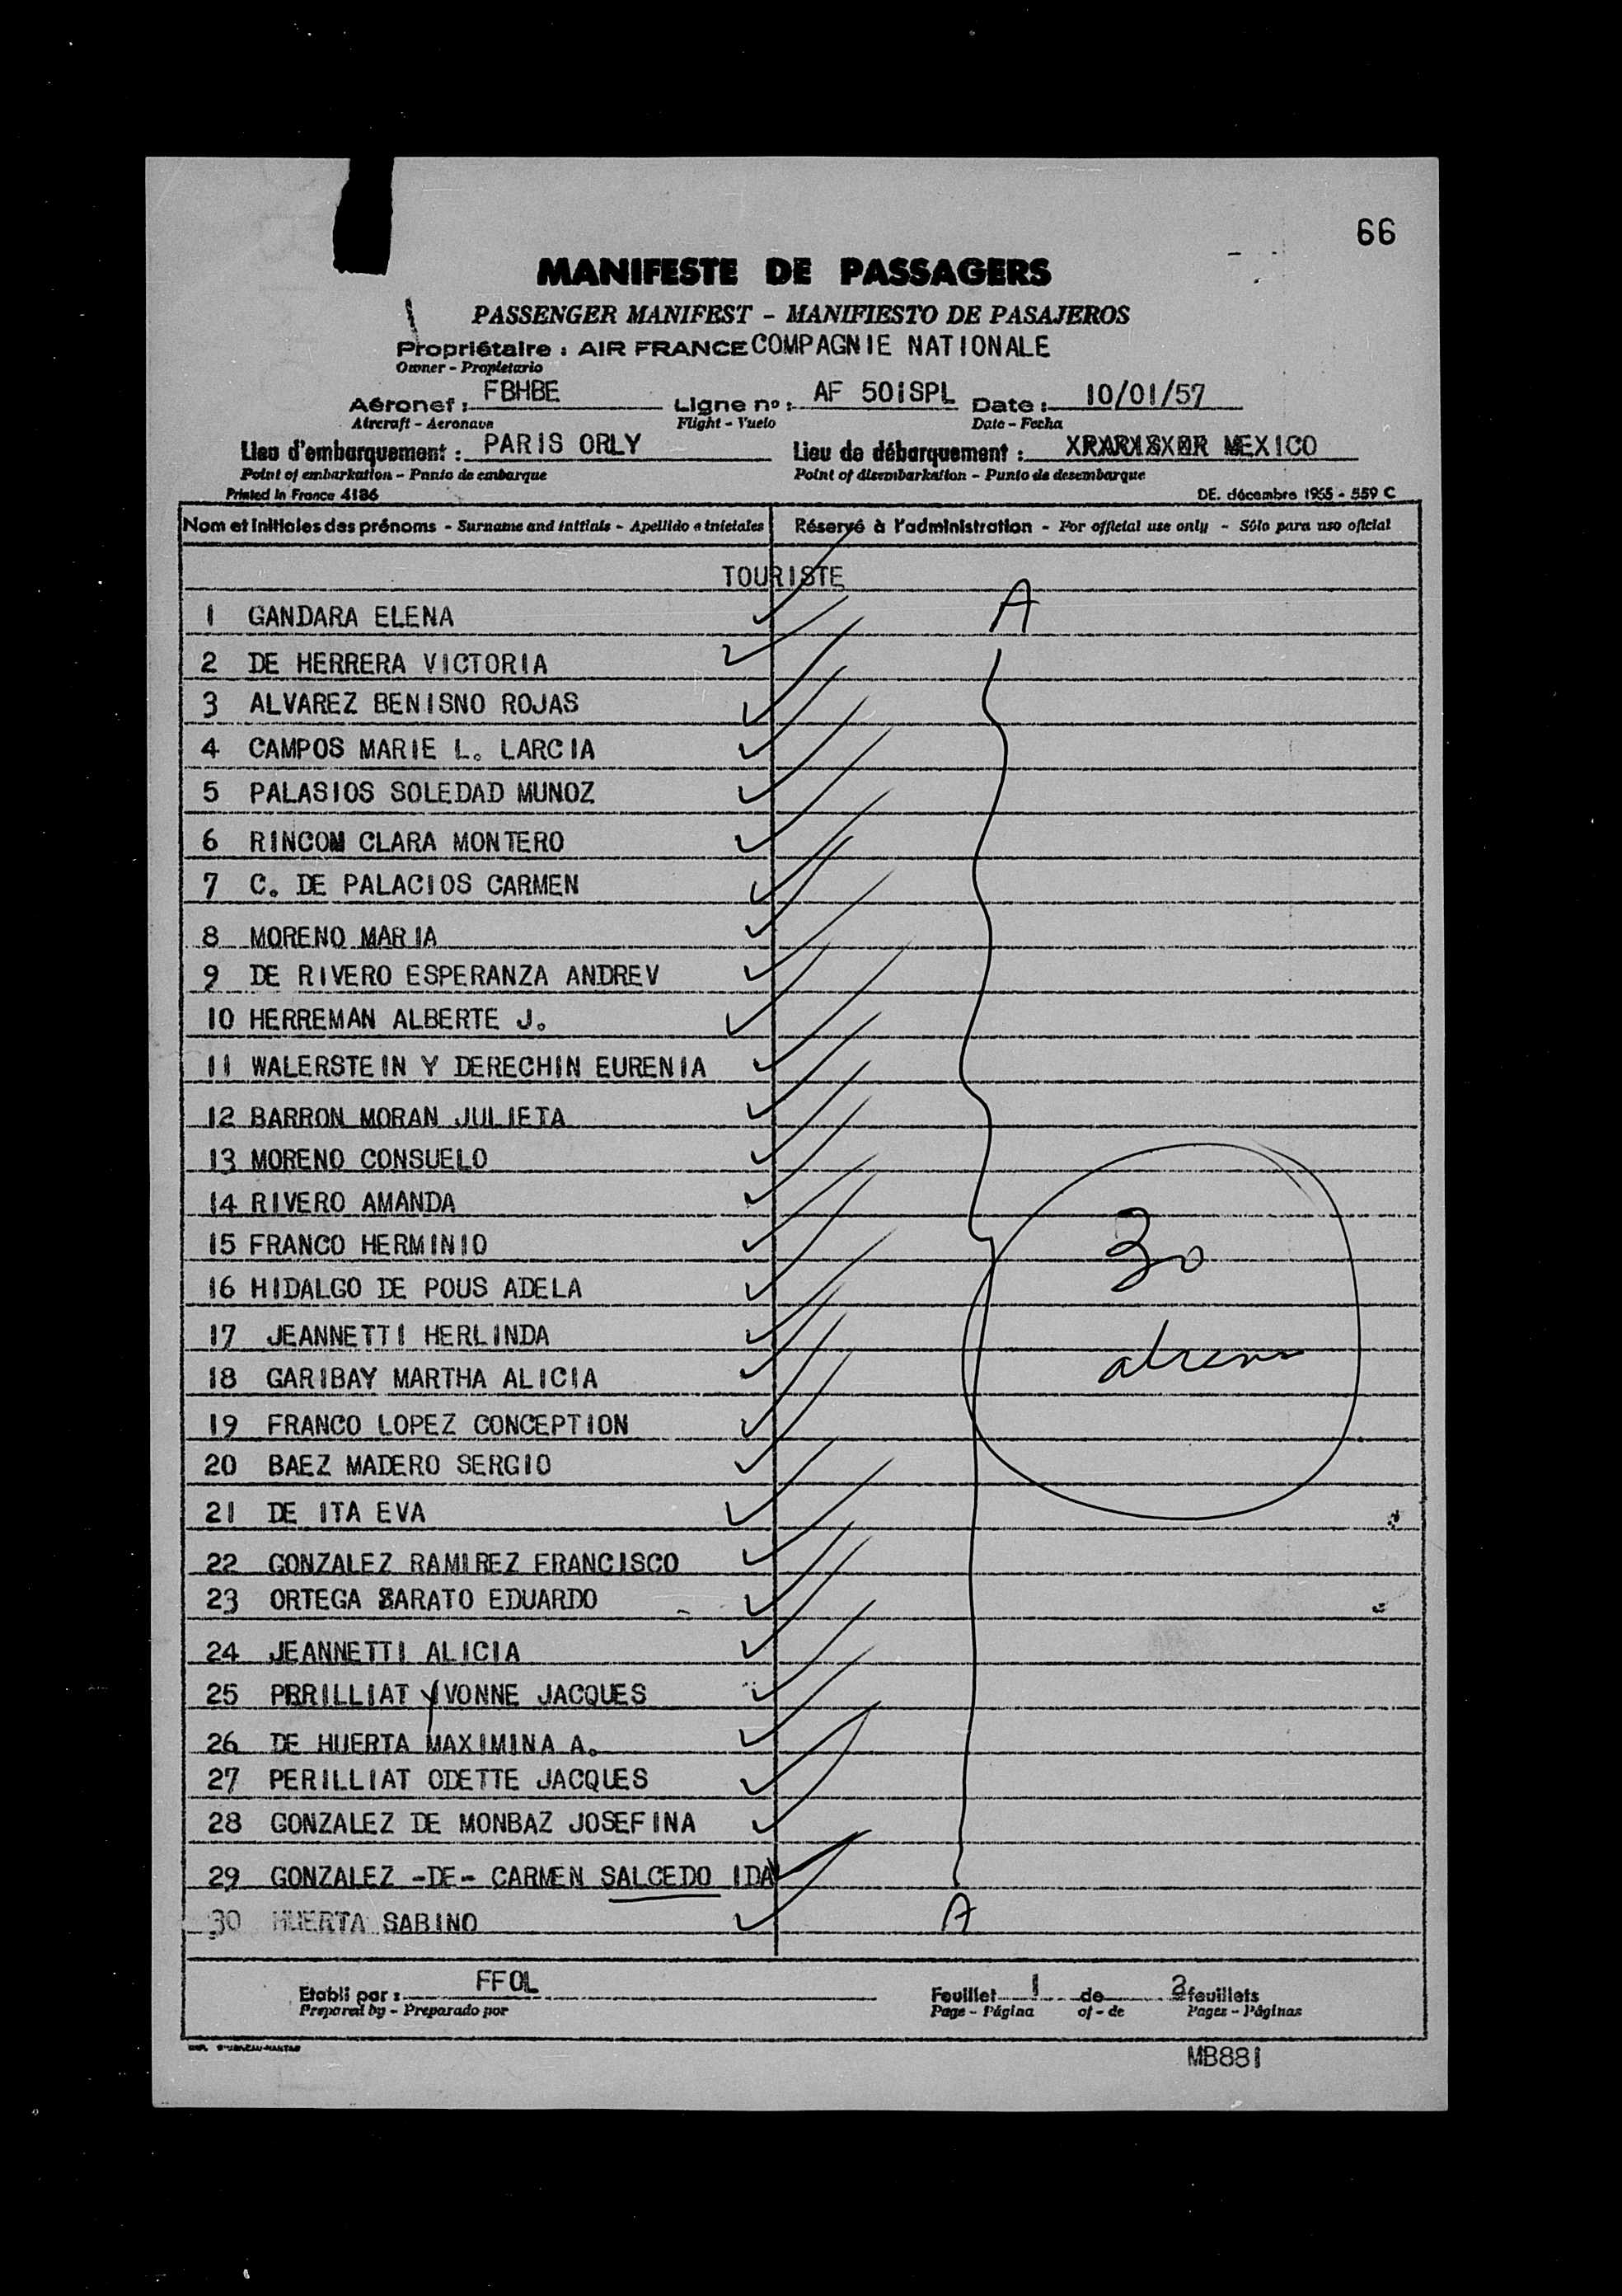 66
MANIFESTE DE PASSAGERS
PASSENGER MANIFEST - MANIFIESTO DE PASAJEROS
Propriétaire : AIR FRANCE COMPAGNIE NATIONALE
Owner - Propietario
Aéronef : FBHBE Ligne no : AF 501SPL Date : 10/01/57
Aircraft - Aeronave Flight - Vuelo Date - Fecha
Lieu d'embarquement : PARIS ORLY Lieu de débarquement : MEXICO
Point of embarkation - Punto de embarque Point of disembarkation - Punto de desembarque
Printed in France 4186 DE. décembre 1955 - 559 C
Nom et initiales des prénoms - Surname and initials - Apellido e iniciales Réservé à l'administration - For official use only - Sólo para uso oficial
TOURISTE
1 GANDARA ELENA A
2 DE HERRERA VICTORIA
3 ALVAREZ BENISNO ROJAS
4 CAMPOS MARIE L. LARCIA
5 PALASIOS SOLEDAD MUNOZ
6 RINCOM CLARA MONTERO
7 C. DE PALACIOS CARMEN
8 MORENO MARIA
9 DE RIVERO ESPERANZA ANDREV
10 HERREMAN ALBERTE J.
11 WALERSTEIN Y DERECHIN EURENIA
12 BARRON MORAN JULIETA
13 MORENO CONSUELO
14 RIVERO AMANDA
15 FRANCO HERMINIO 30
16 HIDALGO DE POUS ADELA
17 JEANNETTI HERLINDA
18 GARIBAY MARTHA ALICIA
19 FRANCO LOPEZ CONCEPTION
20 BAEZ MADERO SERGIO
21 DE ITA EVA
22 GONZALEZ RAMIREZ FRANCISCO
23 ORTEGA SARATO EDUARDO
24 JEANNETTI ALICIA
25 PERILLIAT YVONNE JACQUES
26 DE HUERTA MAXIMINA A.
27 PERILLIAT ODETTE JACQUES
28 GONZALEZ DE MONBAZ JOSEFINA
29 GONZALEZ -DE- CARMEN SALCEDO IDA
30 HUERTA SABINO A
Etabli par : FFOL Feuillet 1 de 3 feuillets
Prepared by - Preparado por Page - Página of - de Pages - Páginas
MB881